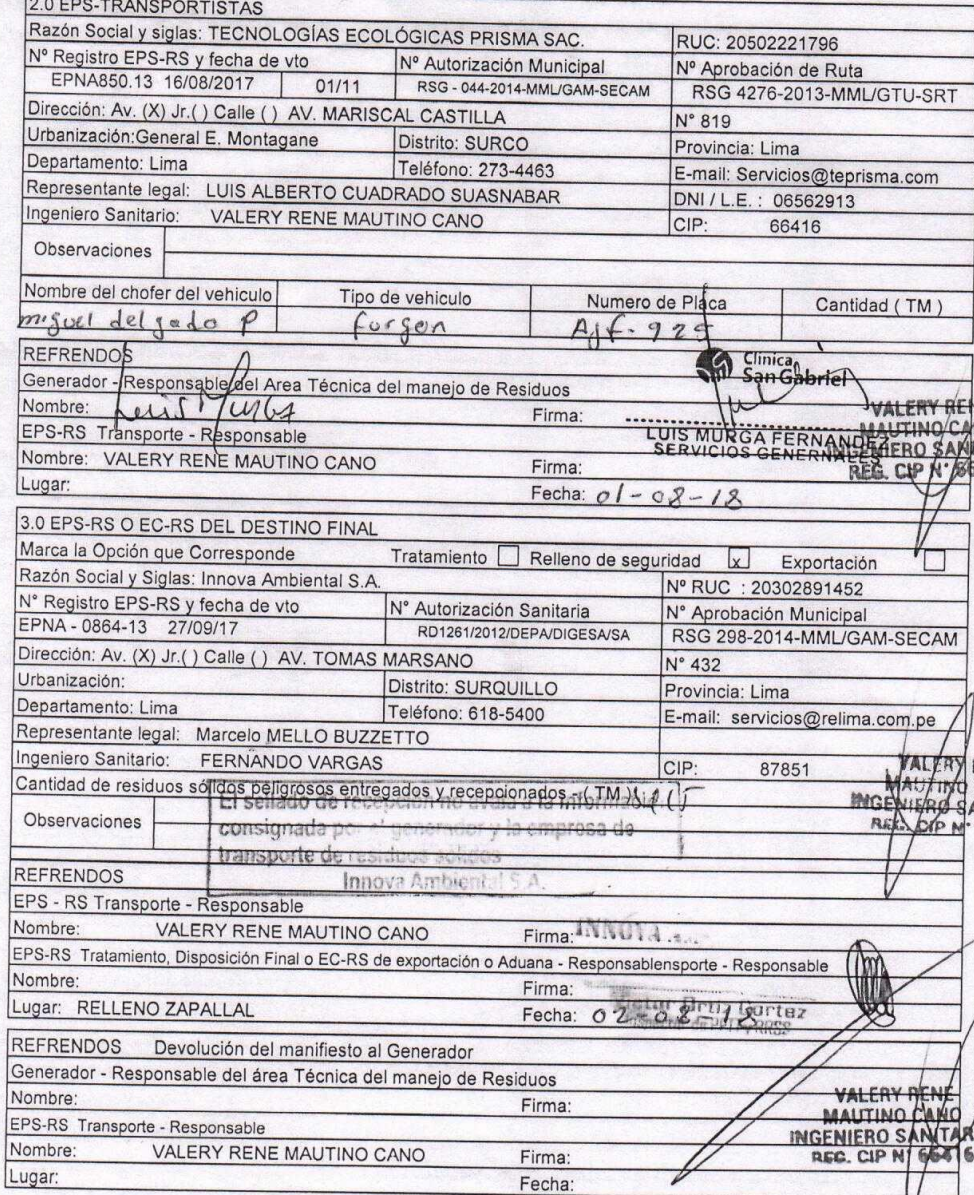 2.0 EPS-TRANSPORTISTAS
Razón Social y siglas: TECNOLOGÍAS ECOLÓGICAS PRISMA SAC. RUC: 20502221796
Nº Registro EPS-RS y fecha de vto Nº Autorización Municipal Nº Aprobación de Ruta
EPNA850.13 16/08/2017 01/11 RSG - 044-2014-MML/GAM-SECAM RSG 4276-2013-MML/GTU-SRT
Dirección: Av. (X) Jr.( ) Calle ( ) AV. MARISCAL CASTILLA N° 819
Urbanización:General E. Montagane Distrito: SURCO Provincia: Lima
Departamento: Lima Teléfono: 273-4463 E-mail: Servicios@teprisma.com
Representante legal: LUIS ALBERTO CUADRADO SUASNABAR DNI / L.E. : 06562913
Ingeniero Sanitario: VALERY RENE MAUTINO CANO CIP: 66416
Observaciones
Nombre del chofer del vehiculo Tipo de vehiculo Numero de Placa Cantidad ( TM )
miguel delgado P furgon AJF-925
REFRENDOS
Clinica
San Gabriel
Generador - Responsable del Area Técnica del manejo de Residuos
Nombre: Luis Murga Firma:
LUIS MURGA FERNANDEZ
SERVICIOS GENERALES
VALERY REN
MAUTINO CA
INGENIERO SANI
REG. CIP N° 66
EPS-RS Transporte - Responsable
Nombre: VALERY RENE MAUTINO CANO Firma:
Lugar: Fecha: 01-08-18
3.0 EPS-RS O EC-RS DEL DESTINO FINAL
Marca la Opción que Corresponde Tratamiento Relleno de seguridad x Exportación
Razón Social y Siglas: Innova Ambiental S.A. Nº RUC : 20302891452
N° Registro EPS-RS y fecha de vto N° Autorización Sanitaria N° Aprobación Municipal
EPNA - 0864-13 27/09/17 RD1261/2012/DEPA/DIGESA/SA RSG 298-2014-MML/GAM-SECAM
Dirección: Av. (X) Jr.( ) Calle ( ) AV. TOMAS MARSANO N° 432
Urbanización: Distrito: SURQUILLO Provincia: Lima
Departamento: Lima Teléfono: 618-5400 E-mail: servicios@relima.com.pe
Representante legal: Marcelo MELLO BUZZETTO
Ingeniero Sanitario: FERNANDO VARGAS CIP: 87851
VALERY
MAUTINO
INGENIERO SA
REG. CIP N°
Cantidad de residuos sólidos peligrosos entregados y recepcionados - ( TM )
Observaciones
El sellado de recepción no avala a la información
consignada por el generador y la empresa de
transporte de residuos sólidos
Innova Ambiental S.A.
REFRENDOS
EPS - RS Transporte - Responsable
Nombre: VALERY RENE MAUTINO CANO Firma: INNOVA
EPS-RS Tratamiento, Disposición Final o EC-RS de exportación o Aduana - Responsablensporte - Responsable
Nombre: Firma:
Victor Ortiz Cortez
Lugar: RELLENO ZAPALLAL Fecha: 02-08-18
REFRENDOS Devolución del manifiesto al Generador
Generador - Responsable del área Técnica del manejo de Residuos
Nombre: Firma:
EPS-RS Transporte - Responsable
Nombre: VALERY RENE MAUTINO CANO Firma:
VALERY RENE
MAUTINO CANO
INGENIERO SANITAR
REG. CIP N° 66416
Lugar: Fecha: